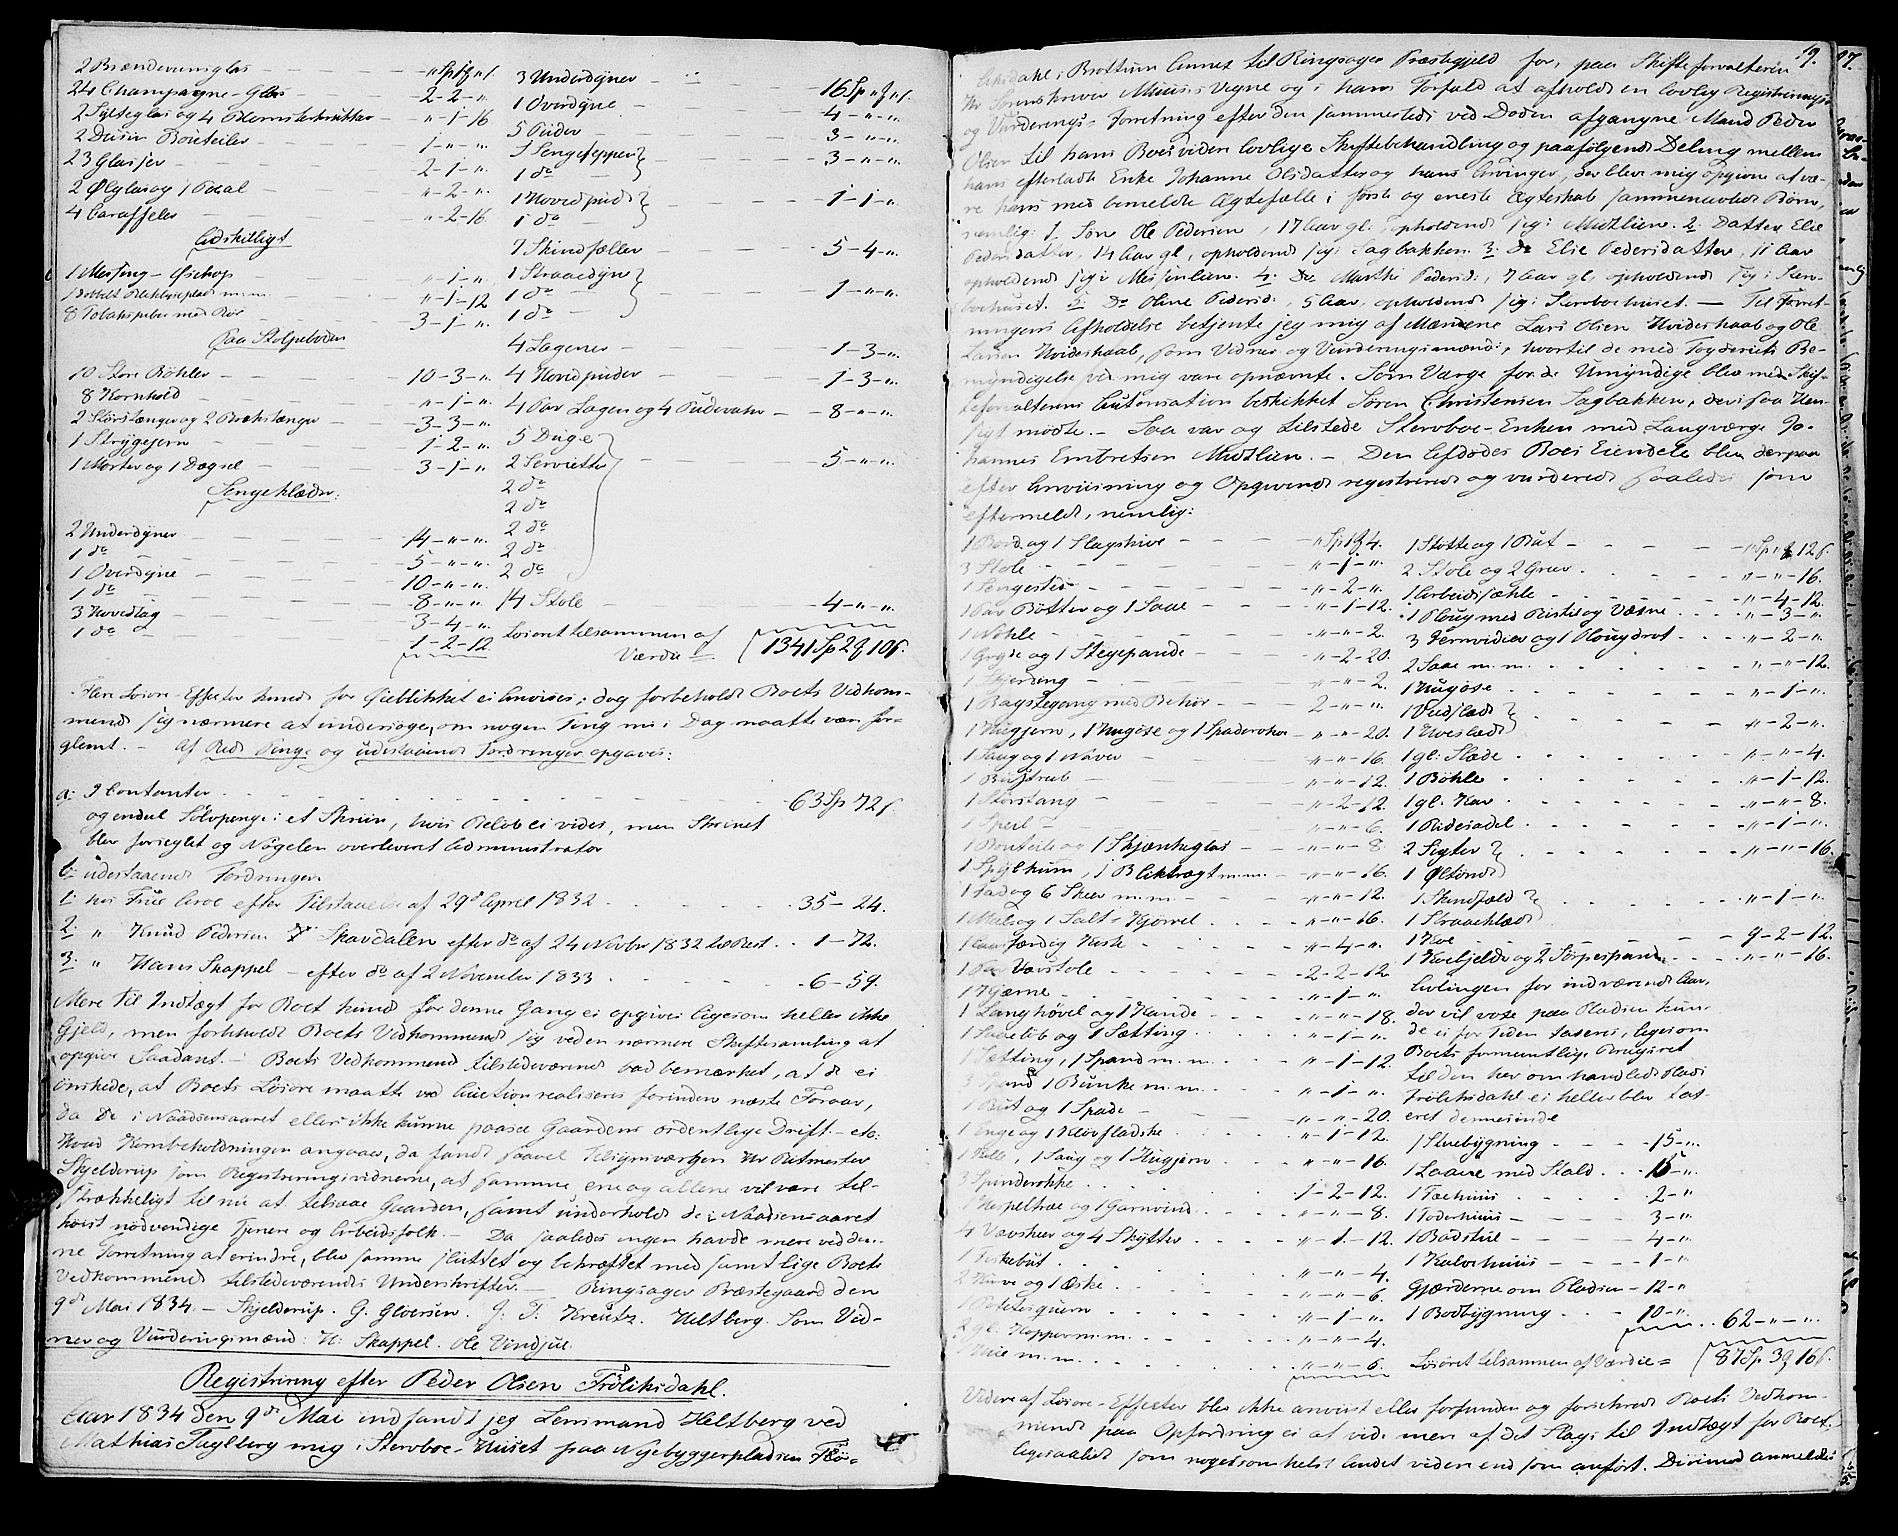 2 Brændeviinsglas — — — " Sp 1 ƒ " s.
24 Champagne-Glas — 2 - 2 - ".
2 Sylteglas og 4 — " - 1 - 16
2 Dusin Bouteiler — 1 - " - ".
23 Glasser — 2 - 1 - ".
2 Ølglas og 1 Pocal — " - 2 - ".
4 Caraffeler — " - 2 - 16
Adskilligt
1 Messing — " - 1 - ".
1 Dobbelt m.m. " - 1 - 12
8 Tobakspiber med Rør — 3 - 1 - ".
Paa Stolpeboden
10 Store Bøhler — 10 - 3 - ".
8 Kornhold — " - 1 - ".
2 Størstænger og 2 — 3 - 3 - ".
1 Strygejern — 1 - 2 - ".
1 Morter og 1 — 3 - 1 - ".
Sengeklæder:
2 Underdyner — 14 - " - ".
1 do — 5 - " - ".
1 Overdyne — 10 - " - ".
1 do — 8 - " - ".
3 Hovedlag — 3 - 4 - ".
1 do — 1 - 2 - 12
3 Underdyner — 16 Sp " ƒ " s.
1 Overdyne — 4 - " - ".
5 Puder — 3 - " - ".
3 Sengetepper
1 do — 3 - " - ".
1 Hovedpude
1 do — 1 - 1 - ".
7 Skindfæller — 5 - 4 - ".
1 Straaedyne
1 do — 1 - " - ".
1 do
4 Lagener — 1 - 3 - ".
4 Hovedpuder — 1 - 3 - ".
4 Par Lagen og 4 Pudevaar — 8 - " - ".
5 Duge
2 Servietter — 5 - " - ".
2 do
2 do
2 do
2 do
2 do
14 Stole — 4 - " - ".
Løsøret tilsammen af
Værdie = 1341 Sp 2 ƒ 10 s.
Flere Løsøre-Effecter kunde for Øieblikket ei anvises; dog forbeholdt Boets Vedkom-
mende sig nærmere at undersøge, om nogen Ting nu i Dag maatte være for-
glemt. — Af Rede Penge og udestaaende Fordringer opgaves:
a: I Contanter . . . 63 Sp 72 s.
og endeel Sølvpenge i et Skriin, hvis Beløb ei vides, men Skrinet
blev forseglet og Nøgelen overleveret Administrator
b: udestaaende Fordringer
1: hos Frue efter Tilstaaelse af 29de April 1832 . . . 35 - 24.
2: " Knud Pedersen Skavdalen efter do af 24 Novbr 1832 til Rest . . 1 - 72.
3: " Hans Skappel — efter do af 2 November 1833 . . . 6 - 59.
Mere til Indtægt for Boet kunde for denne Gang ei opgives ligesom heller ikke
Gjeld, men forbeholdt Boets Vedkommende sig ved en nærmere Skiftesamling at
opgive Saadant. — Boets Vedkommende tilstedeværende bad bemærket, at de ei
ønskede, at Boets Løsøre maatte ved Auction realiseres forinden næste Foraar,
da de i Naadensaaret ellers ikke kunne paasee Gaardens ordentlige Drift — etc:
Hvad Kornbeholdningen angaaer, da fandt saavel Hr Ritmester
Skjelderup som Registringsvidnerne, at samme ene og allene vil være til-
strækkeligt til nu at tilsaae Gaarden, samt underholde de i Naadensaaret
høist nødvendige Tjenere og Arbeidsfolk. — Da saaledes ingen havde mere ved den-
ne Forretning at erindre, blev samme sluttet og bekræftet med samtlige Boets
Vedkommende tilstedeværendes Underskrifter. — Ringsager Præstegaard den
9de Mai 1834. — Skjelderup. G. Gloersen. J. F. Kreutz. Heltberg. Som Vid-
ner og Vurderingsmænd: H: Skappel. Ole Vindjue.
Registrering efter Peder Olsen Frölichsdahl.
Aar 1834 den 9de Mai indfandt jeg Lensmand Heltberg ved
Mathias Fuglberg mig i Stervboe-Huset paa Nyebyggerpladsen Frø-
19.
lichsdahl i Brøttum Annex til Ringsager Præstegjeld for, paa Skifteforvalteren
Hr Sorenskriver Vegne og i hans Forfald at afholde en lovlig Registrerings-
og Vurderings-Forretning efter den sammesteds ved Døden afgangne Mand Peder
Olsen til hans Boes videre lovlige Skiftebehandling og paafølgende Deling mellem
hans efterladte Enke Johanne Olsdatter og hans Arvinger, der bleve mig opgivne at væ-
re hans med bemeldte Ægtefælle i første og eneste Ægteskab sammenavlede Børn,
nemlig: 1 Søn Ole Pedersen, 17 Aar gl. opholdende sig i Midtlien. 2: Datter Elie
Pedersdatter, 14 Aar gl., opholdende sig i Sagbakken. 3: do Elie Pedersdatter, 11 Aar
opholdende sig i Messenlien. 4: do Marthe Pedersd: 7 Aar gl, opholdende sig i Sterv-
boehuset. 5: do Oline Pedersd: 5 Aar, opholdende sig i Stervboehuset. — Til Forret-
ningens Afholdelse betjente jeg mig af Mændene Lars Olsen Hvideskaab og Ole
Larsen Hvideskaab, som Vidner og Vurderingsmænd, hvortil de med Fogderiets Be-
myndigelse ved mig vare opnævnte. Som Værge for de Umyndige blev med Skif-
teforvalterens Autorisation beskikket Søren Christensen Sagbakken, der i saa Hen-
sigt mødte. — Saa var og tilstede Stervboe-Enken med Laugværge Jo-
hannes Embretsen Midtlien. — Den Afdødes Boes Eiendele blev derpaa
efter Anviisning og Opgivende registrerede og vurderede saaledes som
eftermeldt, nemlig:
1 Bord og 1 Slagskive — " Sp 1 ƒ 4.
3 Stole — " - 1 - ".
1 Sengested — " - 2 - ".
1 Par Bøtter og 1 Saae — " - 1 - 12.
1 Nøhle — " - " - 2.
1 Gryde og 1 Stegepande — " - 2 - 20.
1 Fjerding — " - " - 2.
1 Bagstegang med Behør — 2 - " - ".
1 Hugjern, 1 Hugøse og 1 — " - " - 20.
1 Saug og 1 Naver " - " - 16.
1 " - " - 12.
1 Størstang — " - 2 - 12.
1 Speil — " - " - 6.
1 Bouteile og 1 Skjænkeglas — " - " - 8.
1 , 1 Bliktragt m.m. — " - " - 16.
1 Fad og 6 Skeer m.m. — " - " - 12.
1 Mule og 1 Salt-Kjørrel — " - " - 16.
1 Kiste — " - 4 - ".
1 Vævstole — 2 - 2 - 12.
1 — " - 1 - ".
1 Langhøvel og 1 Kande — " - " - 18.
1 og 1 Sætting — " - 1 - ".
Sætting, 1 Spand m.m. — " - 1 - 12.
1 Bunke m.m. — " - 1 - ".
1 But og 1 Spade — " - " - 20.
1 og 1 Kløvfladske — " - 1 - 12.
1 , 1 Saug og 1 Hugjern — " - " - 16.
3 Spinderokke — 1 - 2 - 12.
1 Hespeltræe og 1 Garnvinde — " - " - 8.
4 Vævskeer og 4 Skytter — " - 1 - 12.
1 Fiskebut — " - " - 4.
2 Kurve og 1 Æske — " - " - 6.
1 — " - 1 - ".
2 gl. m.m. — " - " - 4.
m.m. — " - " - 6.
1 Støtte og 1 But — " Sp " ƒ 12 s.
2 Stole og 2 — " - " - 16.
1 Arbeidsjæhle — " - 4 - 12.
1 Ploug med Ristel og — " - 3 - ".
3 og 1 Plougdrot — " - 2 - ".
2 Saae m.m. — " - " - 12.
1 Hugøse — " - 1 - ".
1 Vedslæde
1 Høeslæde — " - 2 - ".
1 gl: Slæde — " - " - 4.
1 Bøhle — " - 1 - 12.
1 gl. Kar — " - " - 8.
1 Ridesadel — " - 1 - ".
2 Sigter
1 Øltønde — " - " - 16.
1 Skindfæld
1 Straaeklæde — " - 1 - ".
1 Koe — 9 - 2 - 12.
1 Koebjelde og 2 Sørpespande — " - " - 16.
Avlingen for indværende Aar,
der vil voxe paa Pladsen kun-
de ei for Tiden taxeres, ligesom
Boets formeentlige Brugsret
til den her omhandlede Plads
Frölichsdahl ei heller blev tax-
eret dennesinde
1 Stuebygning — 15 - ".
1 Laave med Stald — 15 - ".
1 Fæehuus — 2 - "
1 Foderhuus — 3 - ".
1 Badstue — 4 - ".
1 Kalvehuus — 1 - ".
Gjærderne om Pladsen — 12 - "
1 Bodbygning — 10 - ". . 62 - " - ".
Løsøret tilsammen af Værdie = 87 Sp 3 ƒ 16 s.
Videre af Løsøre-Effecter blev ikke anviist eller forfunden og forsikrede Boets Vedkom-
mende paa Opfordring ei at vide mere af det Slags til Indtægt for Boet,
ligesaalidt som noget somhelst andet videre end som anført. Derimod anmeldes